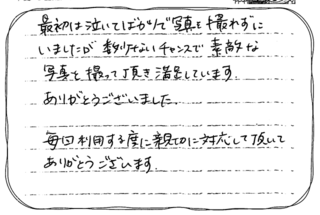 最初は泣いてばかりで写真も撮れずに
いましたが 数少ないチャンスで 素敵な
写真を 撮って頂き 満足しています.
ありがとうございました.
毎回利用する度に親切に対応して頂いて
ありがとうございます.